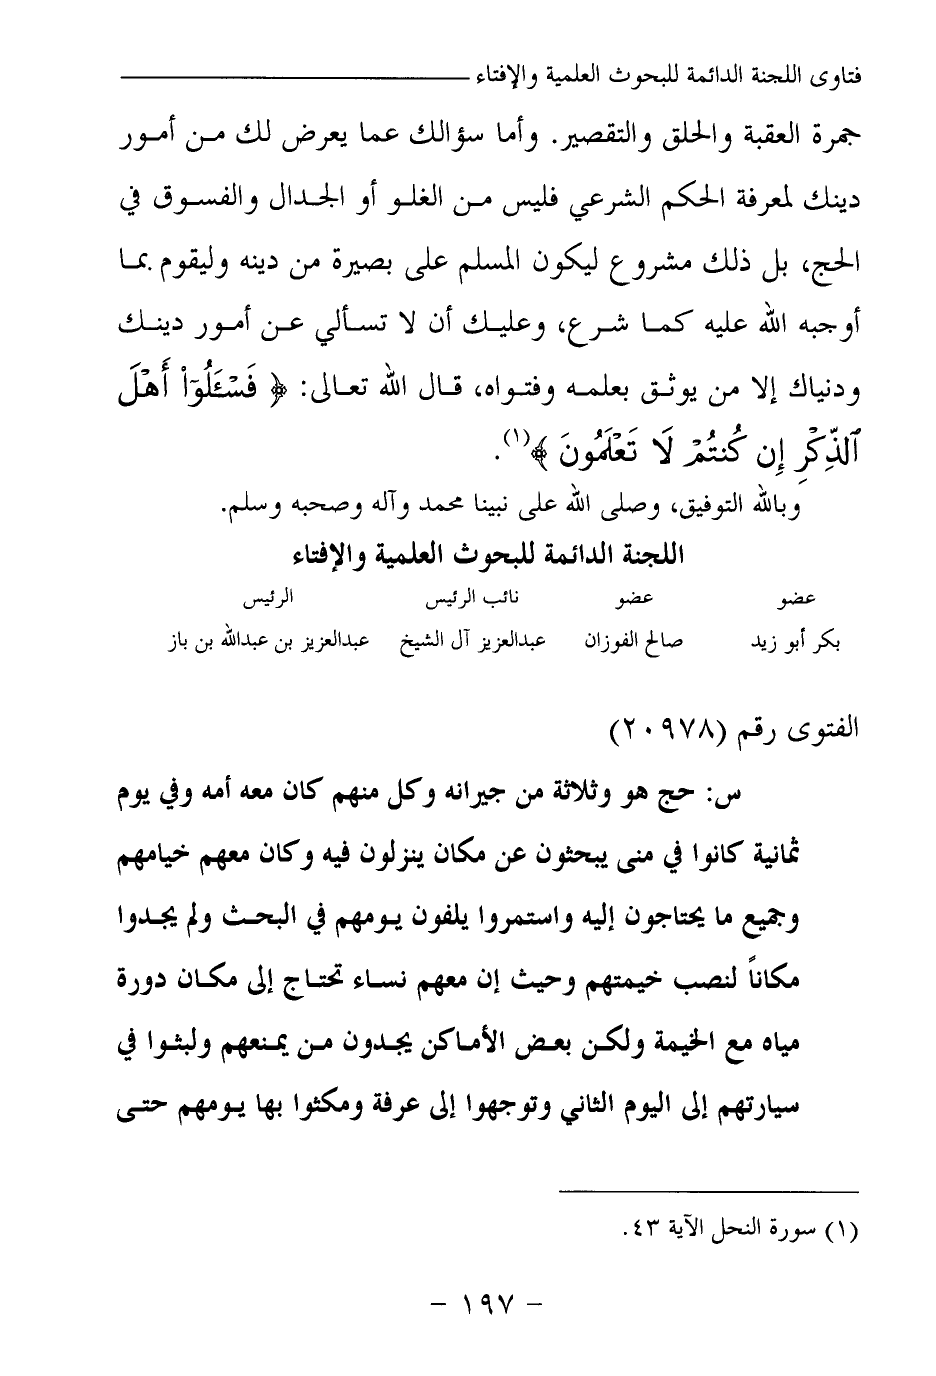 فتاوى اللجنة الدائمة للبحوث العلمية والإفتاء
جمرة العقبة والحلق والتقصير. وأما سؤالك عما يعرض لك من أمور
دينك لمعرفة الحكم الشرعي فليس من الغلو أو الجدال والفسوق في
الحج، بل ذلك مشروع ليكون المسلم على بصيرة من دينه وليقوم بما
أوجبه الله عليه كما شرع، وعليك أن لا تسألي عن أمور دينك
ودنياك إلا من يوثق بعلمه وفتواه، قال الله تعالى: ﴿ فَسْـَٔلُوٓا۟ أَهْلَ
ٱلذِّكْرِ إِن كُنتُمْ لَا تَعْلَمُونَ ﴾(١).
وبالله التوفيق، وصلى الله على نبينا محمد وآله وصحبه وسلم.
اللجنة الدائمة للبحوث العلمية والإفتاء
عضو عضو نائب الرئيس الرئيس
بكر أبو زيد صالح الفوزان عبدالعزيز آل الشيخ عبدالعزيز بن عبدالله بن باز
الفتوى رقم (٢٠٩٧٨)
س: حج هو وثلاثة من جيرانه وكل منهم كان معه أمه وفي يوم
ثمانية كانوا في منى يبحثون عن مكان ينزلون فيه وكان معهم خيامهم
وجميع ما يحتاجون إليه واستمروا يلفون يومهم في البحث ولم يجدوا
مكاناً لنصب خيمتهم وحيث إن معهم نساء تحتاج إلى مكان دورة
مياه مع الخيمة ولكن بعض الأماكن يجدون من يمنعهم ولبثوا في
سيارتهم إلى اليوم الثاني وتوجهوا إلى عرفة ومكثوا بها يومهم حتى
(١) سورة النحل الآية ٤٣.
- ١٩٧ -